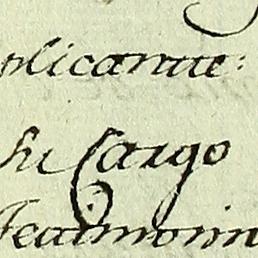 plicante:
su Cargo
Testimonin